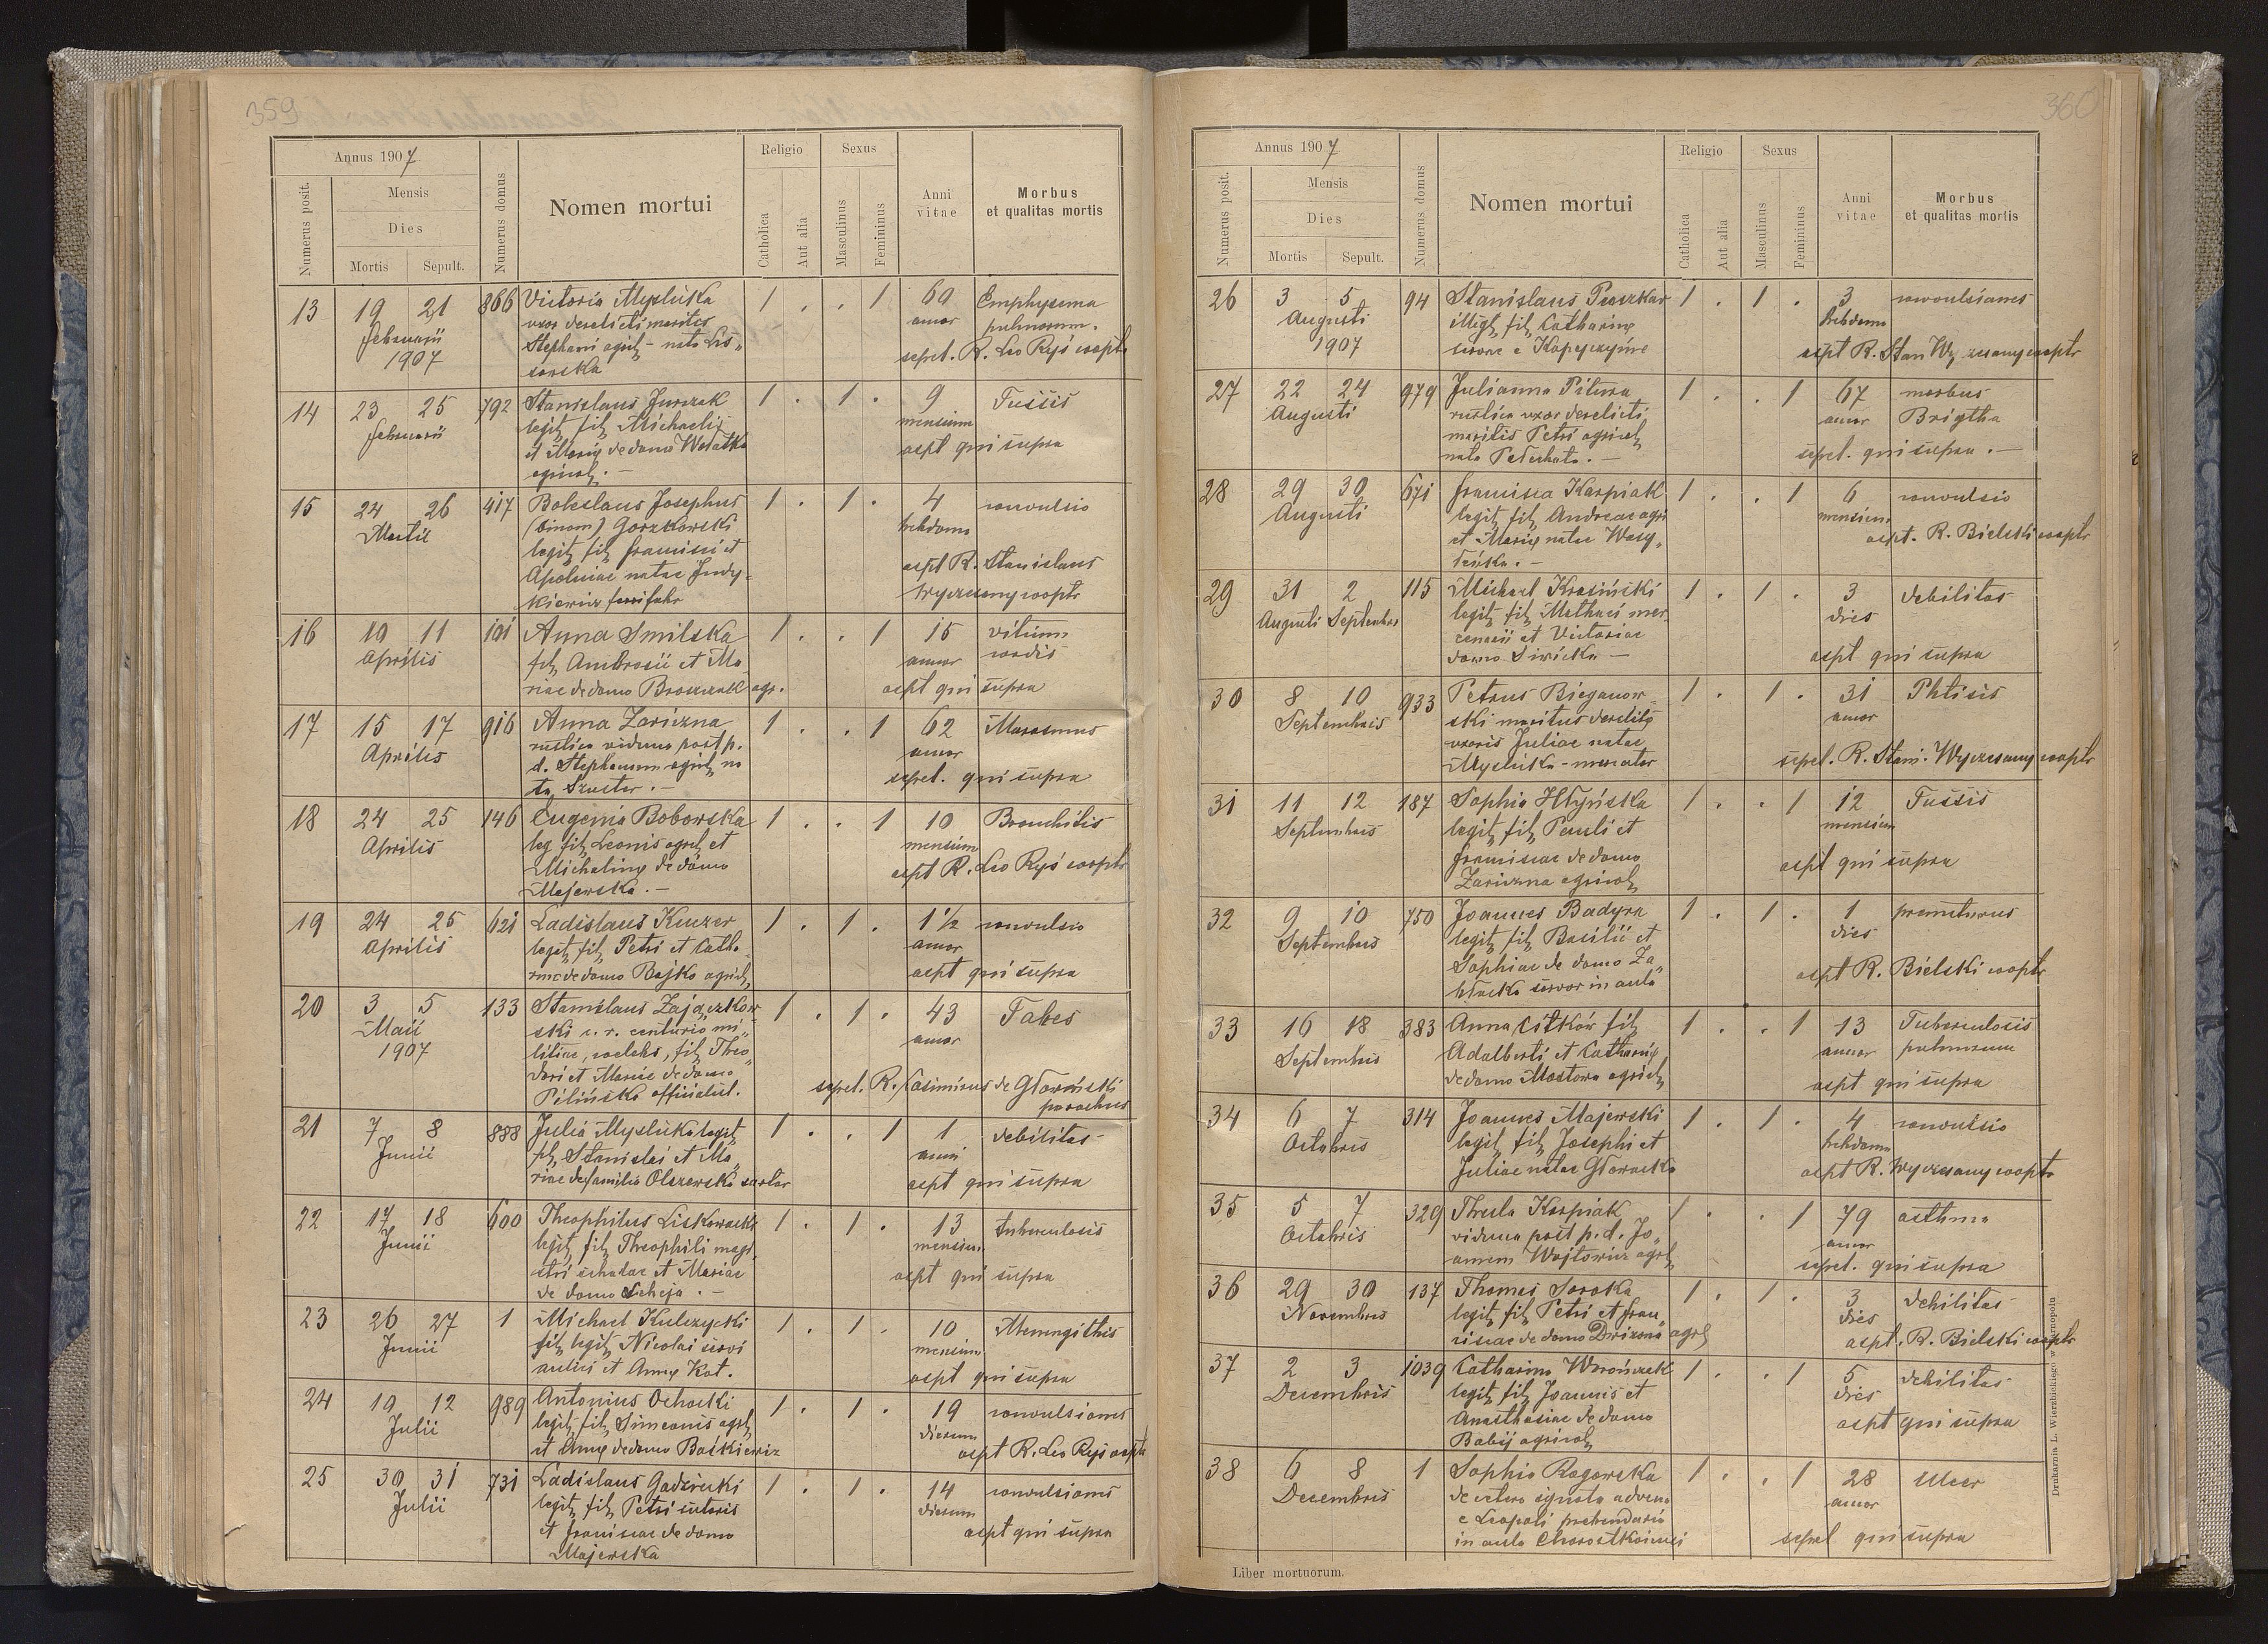 359
Annus 1907
Numerus posit.
Mensis
Dies
Mortis Sepult.
Numerus domus
Nomen mortui
Religio
Catholica
Aut alia
Sexus
Masculinus
Femininus
Anni vitae
Morbus
et qualitas mortis
13 19 21 866 Victoria Myslicka 1 . . 1 69 Emphysema
Februarii uxor derelicti maritus annor pulmorum.
1907 Stephani agricl - nata Lis„ sepel. R. Leo Ryś cooptr
sowska
14 23 25 792 Stanislaus Jurczak 1 . 1 . 9 Tussis
Februarii legit fil Michaelis mensium
et Mariæ de domo Wołatka aspt qui supra
agricol. —
15 24 26 417 Boleslaus Josephus 1 . 1 . 4 convulsio
Martii (binom) Gorzkowski hebdoma
legit fil Francisci et
Apoloniae natae Jundy- aspt R. Stanislaus
kiewicz fabr Wyczesany cooptr
16 10 11 101 Anna Smilska 1 . . 1 15 vitium
Aprilis fil Ambrosii et Ma annor cordis
riae de domo Broszczak agr. aspt qui supra
17 15 17 916 Anna Zariczna 1 . . 1 62 Marasmus
Aprilis rustica vidua post p. annor
d. Stephanum agricl na sepel. qui supra
ta Szuster. —
18 24 25 146 Eugenia Boborska 1 . . 1 10 Bronchitis
Aprilis leg fil Leonis agrcl et mensium
Michalinæ de domo aspt R. Leo Ryś cooptr
Majewska. —
19 24 26 621 Ladislaus Kuczer 1 . 1 . 1 1/2 convulsio
Aprilis legit fil Petri et Catha- annor
rinæ de domo Bojko agricl aspt qui supra
20 3 5 133 Stanislaus Zajączkow 1 . 1 . 43 Tabes
Maii ski c. r. centurio mi„ annor
1907 litiae, coelebs, fil Theo„
dori et Mariae de domo
Pilińska officialist. sepel. R. Casimirus de Głowiński
parochus
21 7 8 888 Julia Myslicka legit 1 . . 1 1 debilitas
Junii fil Stanislai et Ma„ anni
riae de familia Olszewska sartor aspt qui supra
22 17 18 600 Theophilus Liskowacki 1 . 1 . 13 tuberculosis
Junii legit fil Theophili magi mensium
stri scholae et Mariae aspt qui supra
de domo Scheja. —
23 26 27 1 Michael Kulczycki 1 . 1 . 10 Meningithis
Junii fil legit Nicolai servi mensium
aulici et Annæ Kot. aspt qui supra
24 10 12 989 Antonius Ochocki 1 . 1 . 19 convulsiones
Julii legit fil Simeonis agrcl dierum
et Annæ de domo Baśkiewicz aspt R. Leo Ryś cooptr
25 30 31 731 Ladislaus Gadziński 1 . 1 . 14 convulsiones
Julii legit fil Petri sutoris dierum
et Franciscae de domo aspt qui supra
Majewska
360
Annus 1907
Numerus posit.
Mensis
Dies
Mortis Sepult.
Numerus domus
Nomen mortui
Religio
Catholica
Aut alia
Sexus
Masculinus
Femininus
Anni vitae
Morbus
et qualitas mortis
26 3 5 94 Stanislaus 1 . 1 . 3 convulsiones
Augusti illigt fil Catharinæ hebdoma
1907 servae e Kopyczyńce aspt R. Stan Wyczesany cooptr
27 22 24 979 Julianna Pitura 1 . . 1 67 morbus
Augusti rustica uxor derelicti annor Brigtha
maritis Petri agricol sepel. qui supra. —
nata Peluchata. —
28 29 30 671 Francisca Karpiak 1 . . 1 6 convulsio
Augusti legit fil Andreae agri mensium
et Mariæ natae Wasy„ aspt. R. Bielski cooptr
leńka. —
29 31 2 115 Michael Krasiński 1 . 1 . 3 debilitas
Augusti Septembris legit fil Mathaei mer dies
cenarii et Victoriae
domo Siwicka — aspt qui supra
30 8 10 933 Petrus Bieganow- 1 . 1 . 31 Phtisis
Septembris ski maritus derelictæ annor
uxoris Juliae natae
Myslicka - mercator sepel. R. Stani. Wyczesany cooptr
31 11 12 187 Sophia Hłyńska 1 . . 1 12 Tussis
Septembris legit fil Pauli et mensium
Franciscae de domo aspt qui supra
Zariczna agricol
32 9 10 750 Joannes Badyra 1 . 1 . 1 prematurus
Septembris legit fil Basilii et dies
Sophiae de domo Za„ aspt R. Bielski cooptr
błocka servor in aula
33 16 18 383 Anna Citków fil 1 . . 1 13 Tuberculosis
Septembris Adalberti et Catharinæ annor pulmorum
de domo Mostowa agricl aspt qui supra
34 6 7 314 Joannes Majewski 1 . 1 . 4 convulsio
Octobris legit fil Josephi et hebdoma
Juliae natae Głowacka aspt R. Wyczesany cooptr
35 5 7 329 Thecla Karpiak 1 . . 1 79 asthma
Octobris vidua post p. d. Jo„ annor
annem Wojtowicz agrcl sepel. qui supra
36 29 30 137 Thomas Soroka 1 . 1 . 3 debilitas
Novembris legit fil Petri et Fran„ dies
ciscae de domo agrcl aspt. R. Bielski cooptr
37 2 3 1039 Catharina Worończak 1 . . 1 5 debilitas
Decembris legit fil Joannis et dies
Anasthasiae de domo aspt qui supra
Babij agricol
38 6 8 1 Sophia Rogowska 1 . . 1 28 Ulcer
Decembris de cetero ignota advena annor
e Leopoli prebendaria
in aula Chorostkoviensi sepel qui supra
Liber mortuorum.
Drukarnia L. Wierzbickiego w Tarnopolu